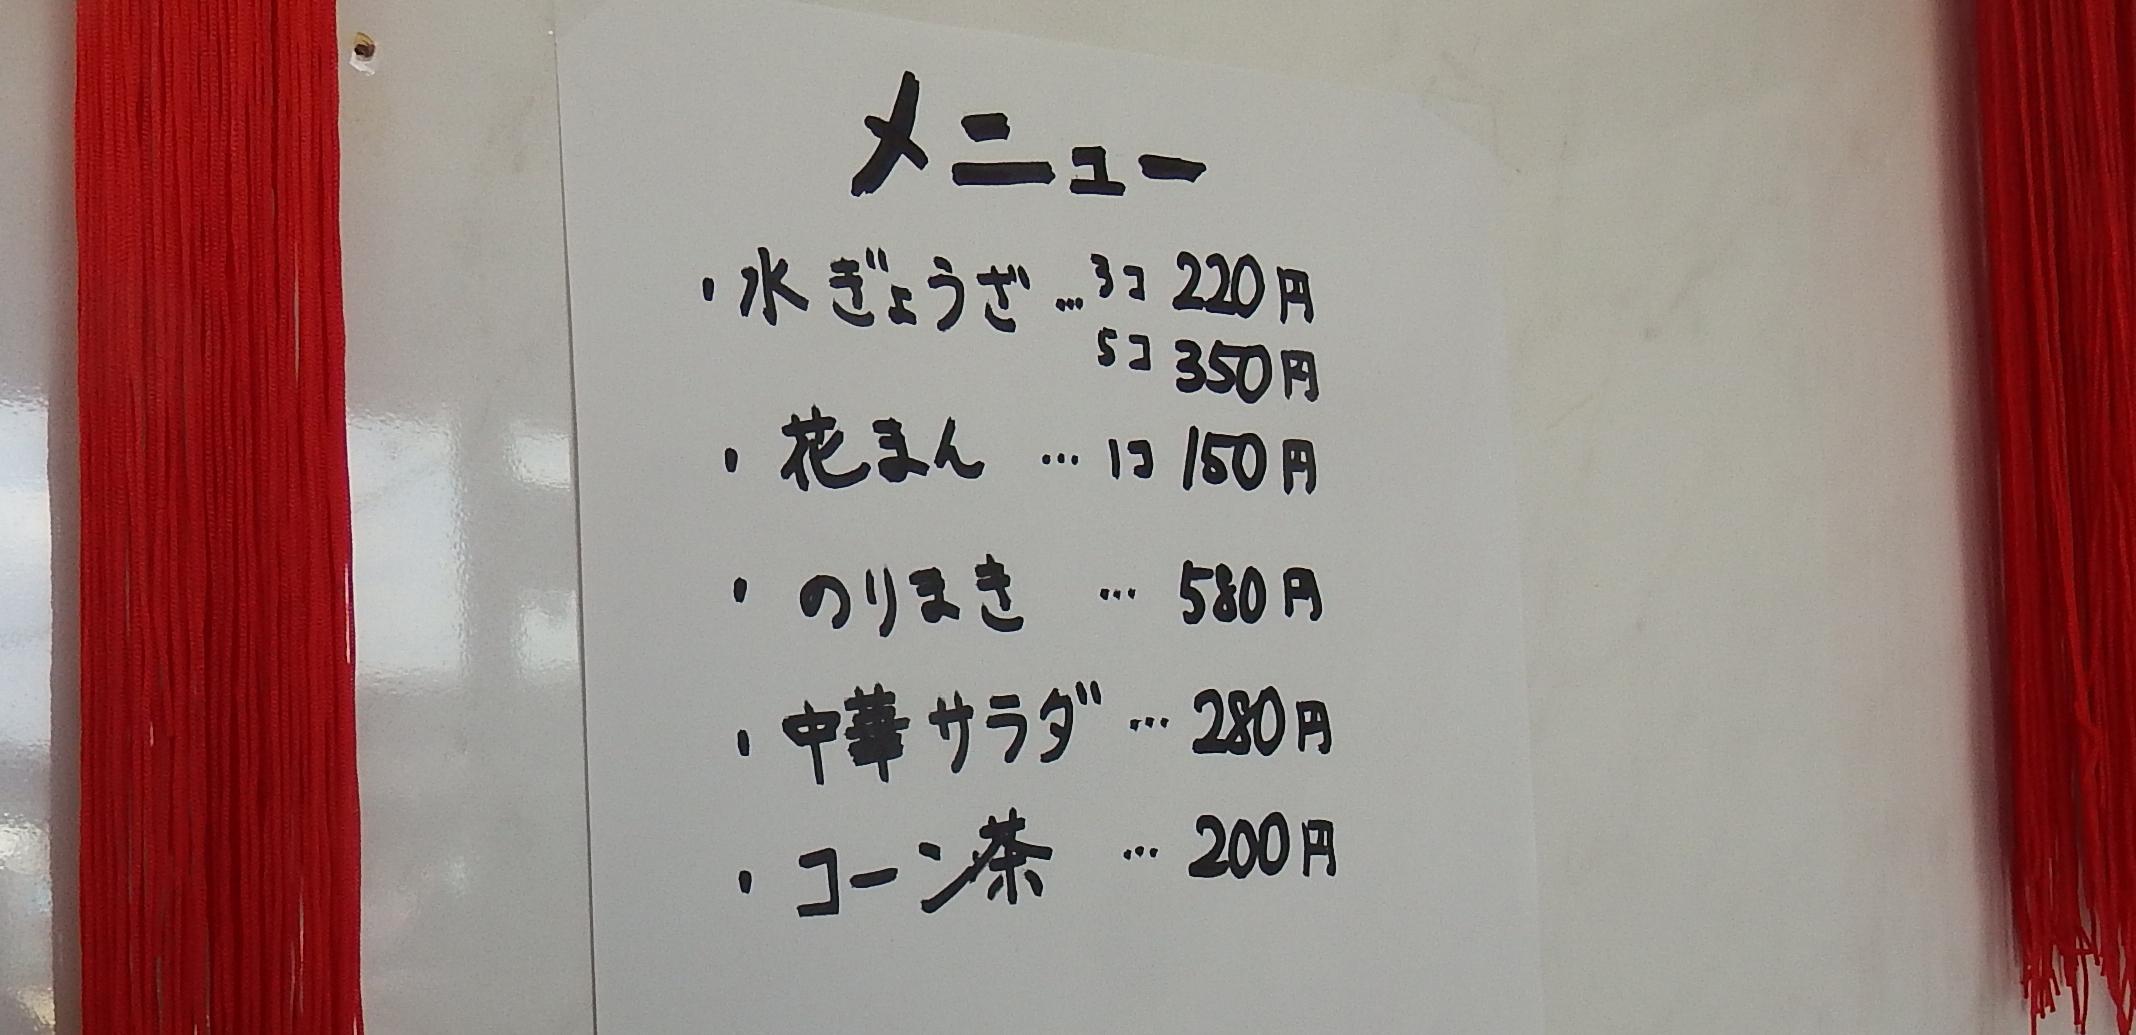 メニュー
・水ぎょうざ…3コ 220円
5コ 350円
・花まん …1コ 150円
・のりまき … 580円
・中華サラダ … 280円
・コーン茶 … 200円